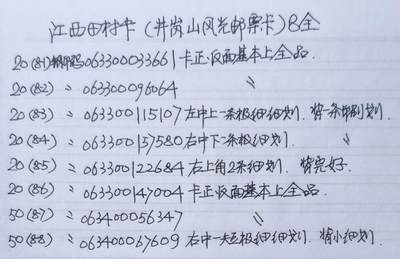 江西田村卡（井岗山风光邮票卡）8全
20（81）编码06330003661卡正反面基本上全品.
20（82）〃 063300096064 〃
20（83）〃 063300115107左中上一条极细细划.背一条细划.
20（84）〃 063300157580右中下二条极细划. 〃
20（85）〃 063300122684右上角2条细划.背完好.
20（86）〃 063300147004卡正反面基本上全品.
50（87）〃 063400056347 〃
50（88）〃 063400067609右中一尖极细细划.背小细划.